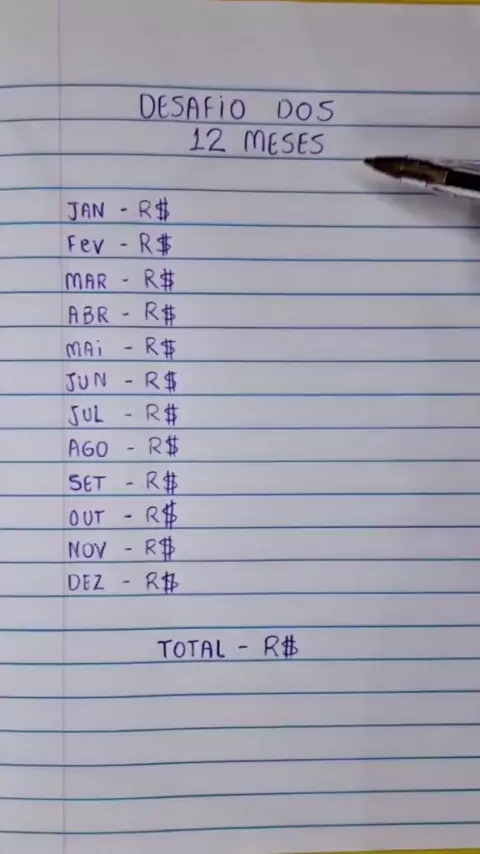 DESAFIO DOS
12 MESES
JAN - R$
FEV - R$
MAR - R$
ABR - R$
MAI - R$
JUN - R$
JUL - R$
AGO - R$
SET - R$
OUT - R$
NOV - R$
DEZ - R$
TOTAL - R$